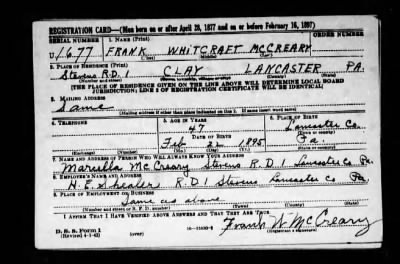 REGISTRATION CARD—(Men born on or after April 28, 1877 and on or before February 16, 1897)
SERIAL NUMBER 1. NAME (Print)
U 1677 FRANK WHITCRAFT McCREARY
(First) (Middle) (Last)
2. PLACE OF RESIDENCE (Print)
Stevens R.D. 1 CLAY LANCASTER PA.
(Number and street) (Town, township, village, or city) (County) (State)
[THE PLACE OF RESIDENCE GIVEN ON THE LINE ABOVE WILL DETERMINE LOCAL BOARD
JURISDICTION; LINE 2 OF REGISTRATION CERTIFICATE WILL BE IDENTICAL]
3. MAILING ADDRESS
Same
[Mailing address if other than place indicated on line 2. If same insert word same]
4. TELEPHONE 5. AGE IN YEARS 6. PLACE OF BIRTH
47 Lancaster Co.
DATE OF BIRTH (Town or county)
Feb 1895 Pa
(Exchange) (Number) (Mo.) (Day) (Yr.) (State or country)
7. NAME AND ADDRESS OF PERSON WHO WILL ALWAYS KNOW YOUR ADDRESS
McCreary Stevens R.D. 1 Lancaster Co. Pa.
8. EMPLOYER'S NAME AND ADDRESS
H.E. R.D. 1 Stevens Lancaster Co Pa.
9. PLACE OF EMPLOYMENT OR BUSINESS
Same as above
(Number and street or R. F. D. number) (Town) (County) (State)
I AFFIRM THAT I HAVE VERIFIED ABOVE ANSWERS AND THAT THEY ARE TRUE.
Frank W McCreary
D. S. S. Form 1
(Revised 4-1-42) (over) (Registrant's signature)